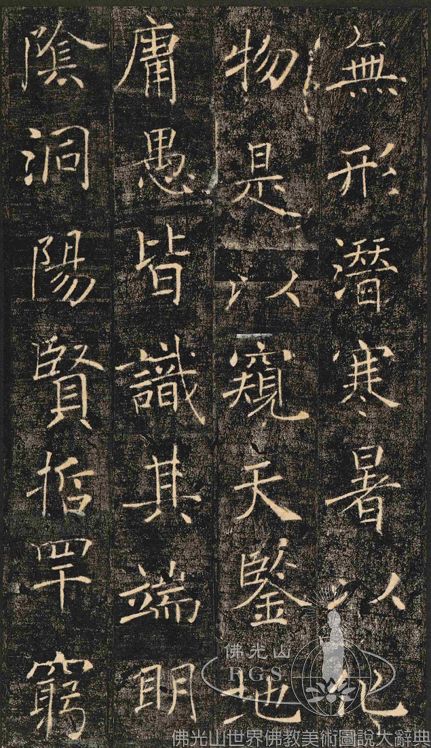 無形潛寒暑以化
物是以窺天鑒地
庸愚皆識其端明
陰洞陽賢哲罕窮
佛光山
BGS
佛光山世界佛教美術圖說大辭典